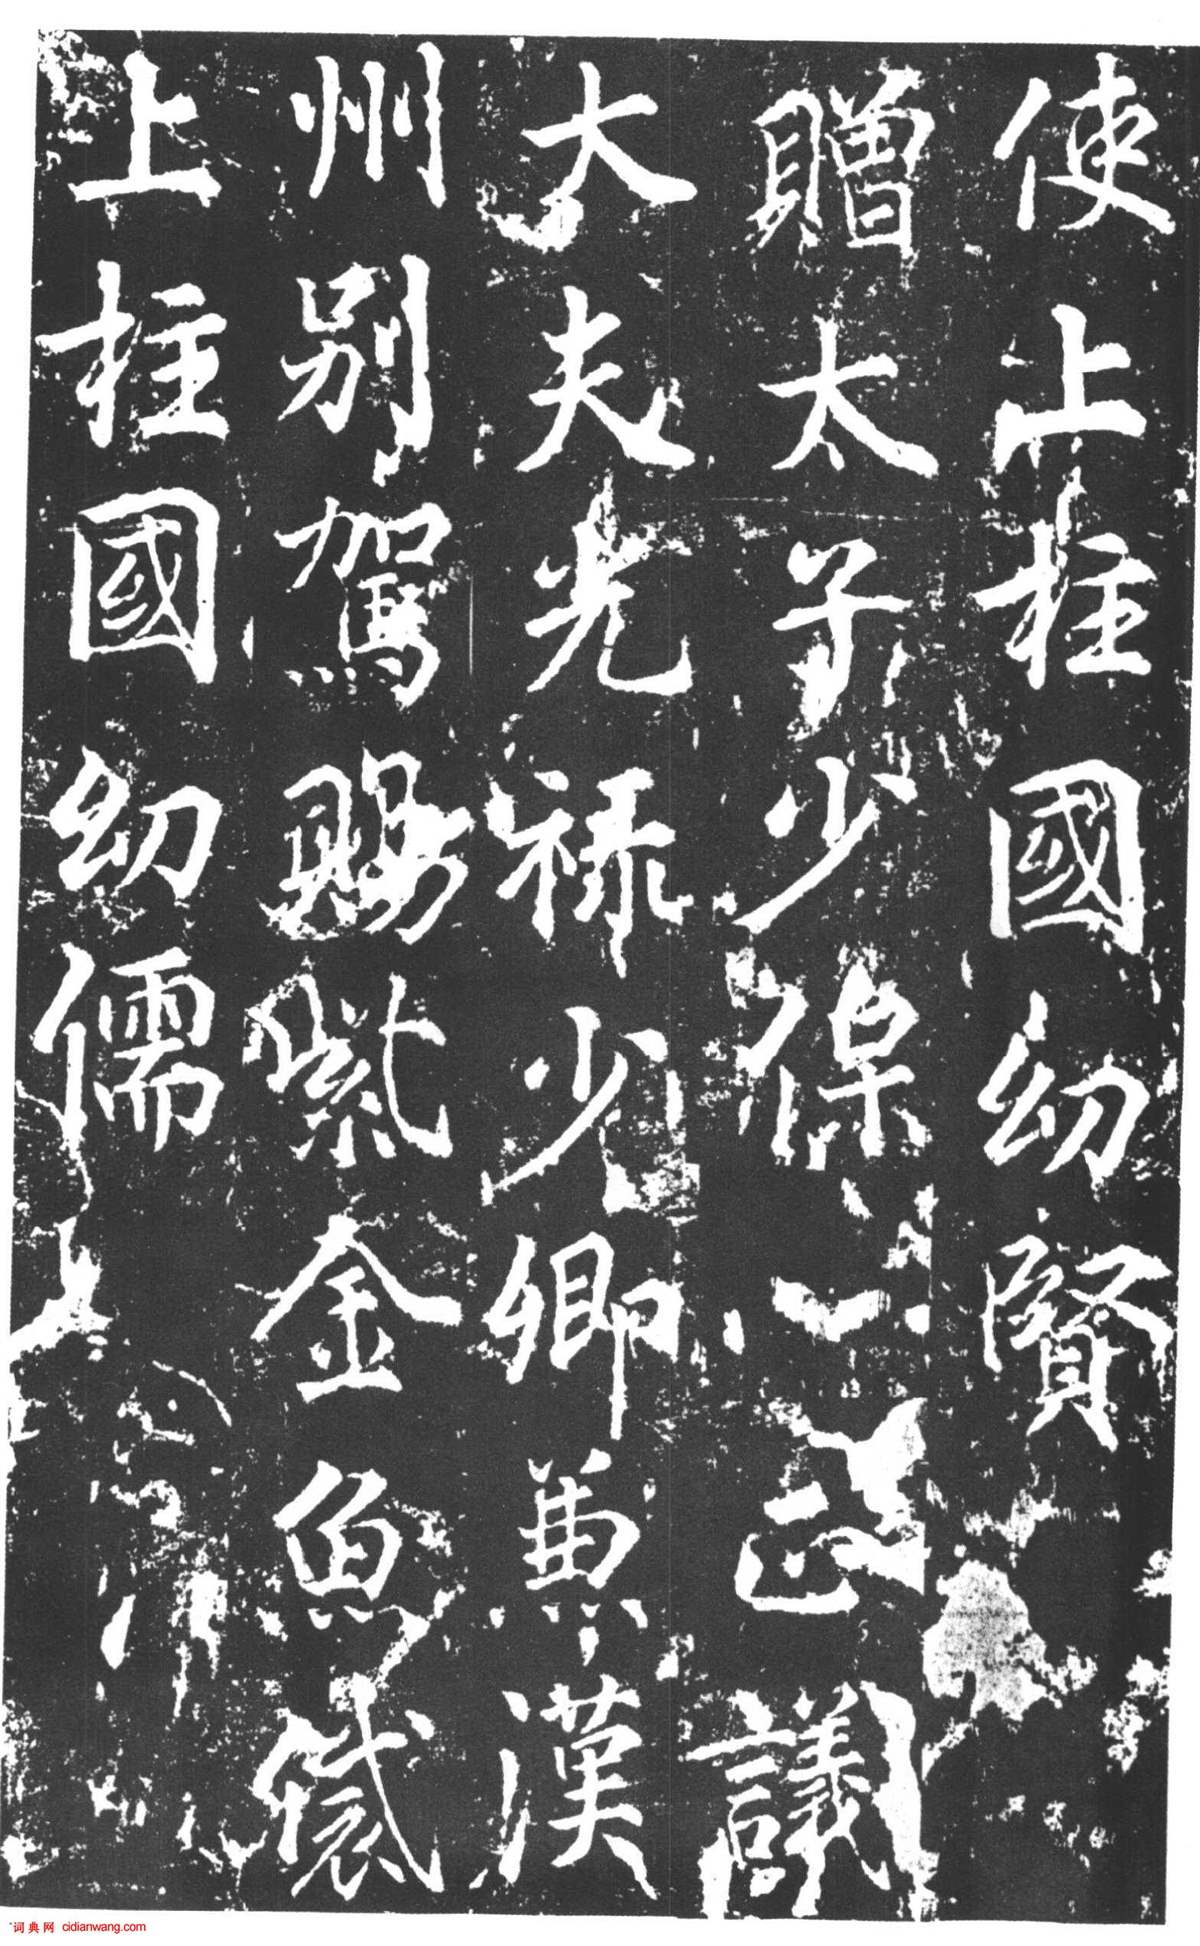 使上柱國幼賢
贈太子少保正議
大夫光祿少卿兼漢
州別駕賜紫金魚袋
上柱國幼儒
词典网 cidianwang.com